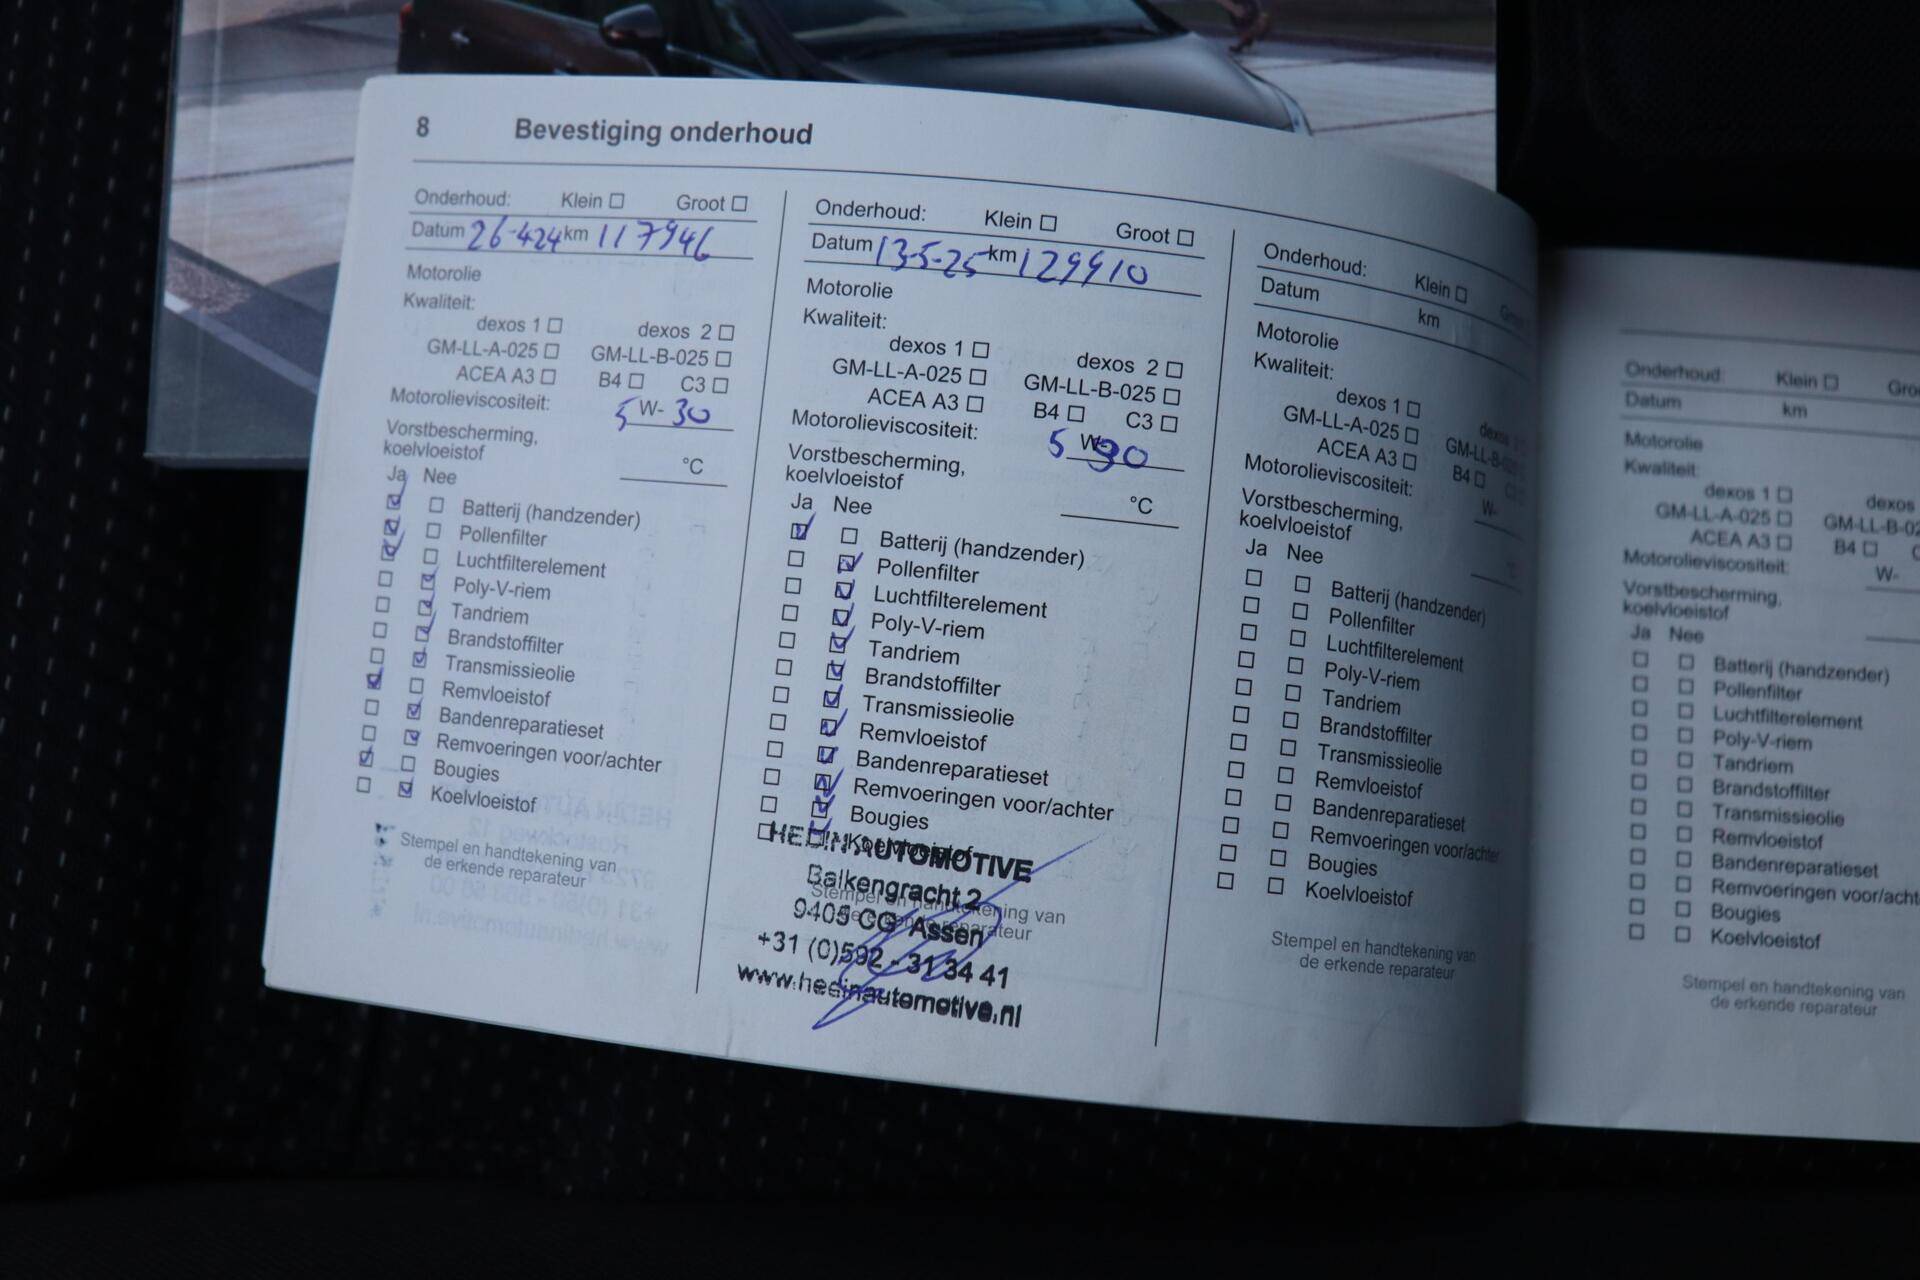 8 Bevestiging onderhoud
Onderhoud: Klein Groot
Datum 26-424 km 117946
Motorolie
Kwaliteit:
dexos 1 dexos 2
GM-LL-A-025 GM-LL-B-025
ACEA A3 B4 C3
Motorolieviscositeit: 5 W- 30
Vorstbescherming,
koelvloeistof °C
Ja Nee
Batterij (handzender)
Pollenfilter
Luchtfilterelement
Poly-V-riem
Tandriem
Brandstoffilter
Transmissieolie
Remvloeistof
Bandenreparatieset
Remvoeringen voor/achter
Bougies
Koelvloeistof
Stempel en handtekening van
de erkende reparateur
Onderhoud: Klein Groot
Datum 13-5-25 km 129910
Motorolie
Kwaliteit:
dexos 1 dexos 2
GM-LL-A-025 GM-LL-B-025
ACEA A3 B4 C3
Motorolieviscositeit: 5 W- 30
Vorstbescherming,
koelvloeistof °C
Ja Nee
Batterij (handzender)
Pollenfilter
Luchtfilterelement
Poly-V-riem
Tandriem
Brandstoffilter
Transmissieolie
Remvloeistof
Bandenreparatieset
Remvoeringen voor/achter
Bougies
Koelvloeistof
Stempel en handtekening van
de erkende reparateur
HEDIN AUTOMOTIVE
Balkengracht 2
9405 CG Assen
+31 (0)592 - 31 34 41
www.hedinautomotive.nl
Onderhoud: Klein
Datum km
Motorolie
Kwaliteit:
dexos 1 dexos
GM-LL-A-025 GM-LL-B-
ACEA A3 B4
Motorolieviscositeit: W-
Vorstbescherming,
koelvloeistof °C
Ja Nee
Batterij (handzender)
Pollenfilter
Luchtfilterelement
Poly-V-riem
Tandriem
Brandstoffilter
Transmissieolie
Remvloeistof
Bandenreparatieset
Remvoeringen voor/achter
Bougies
Koelvloeistof
Stempel en handtekening van
de erkende reparateur
Onderhoud: Klein Gro
Datum km
Motorolie
Kwaliteit:
dexos 1 dexos
GM-LL-A-025 GM-LL-B-02
ACEA A3 B4 C
Motorolieviscositeit: W-
Vorstbescherming,
koelvloeistof
Ja Nee
Batterij (handzender)
Pollenfilter
Luchtfilterelement
Poly-V-riem
Tandriem
Brandstoffilter
Transmissieolie
Remvloeistof
Bandenreparatieset
Remvoeringen voor/acht
Bougies
Koelvloeistof
Stempel en handtekening van
de erkende reparateur